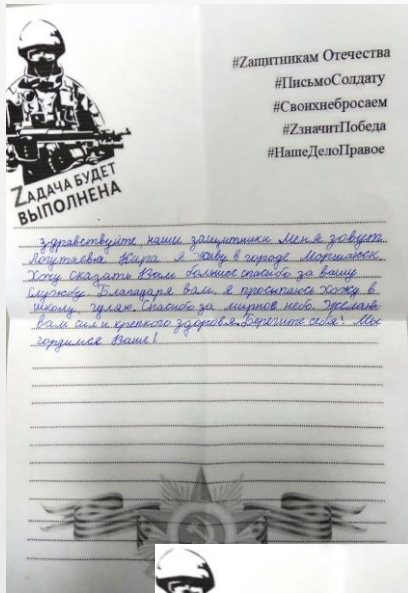 #Zащитникам Отечества
#ПисьмоСолдату
#Своихнебросаем
#ZзначитПобеда
#НашеДелоПравое
ZАДАЧА БУДЕТ
ВЫПОЛНЕНА
здравствуйте, наши защитники меня зовут
Кира я живу в городе Моршанск.
Хочу сказать Вам большое спасибо за вашу
службу. Благодаря вам, я просыпаюсь хожу в
школу, гуляю. Спасибо за мирное небо. Желаю
вам сил и крепкого здоровья. Берегите себя! Мы
гордимся Вами!